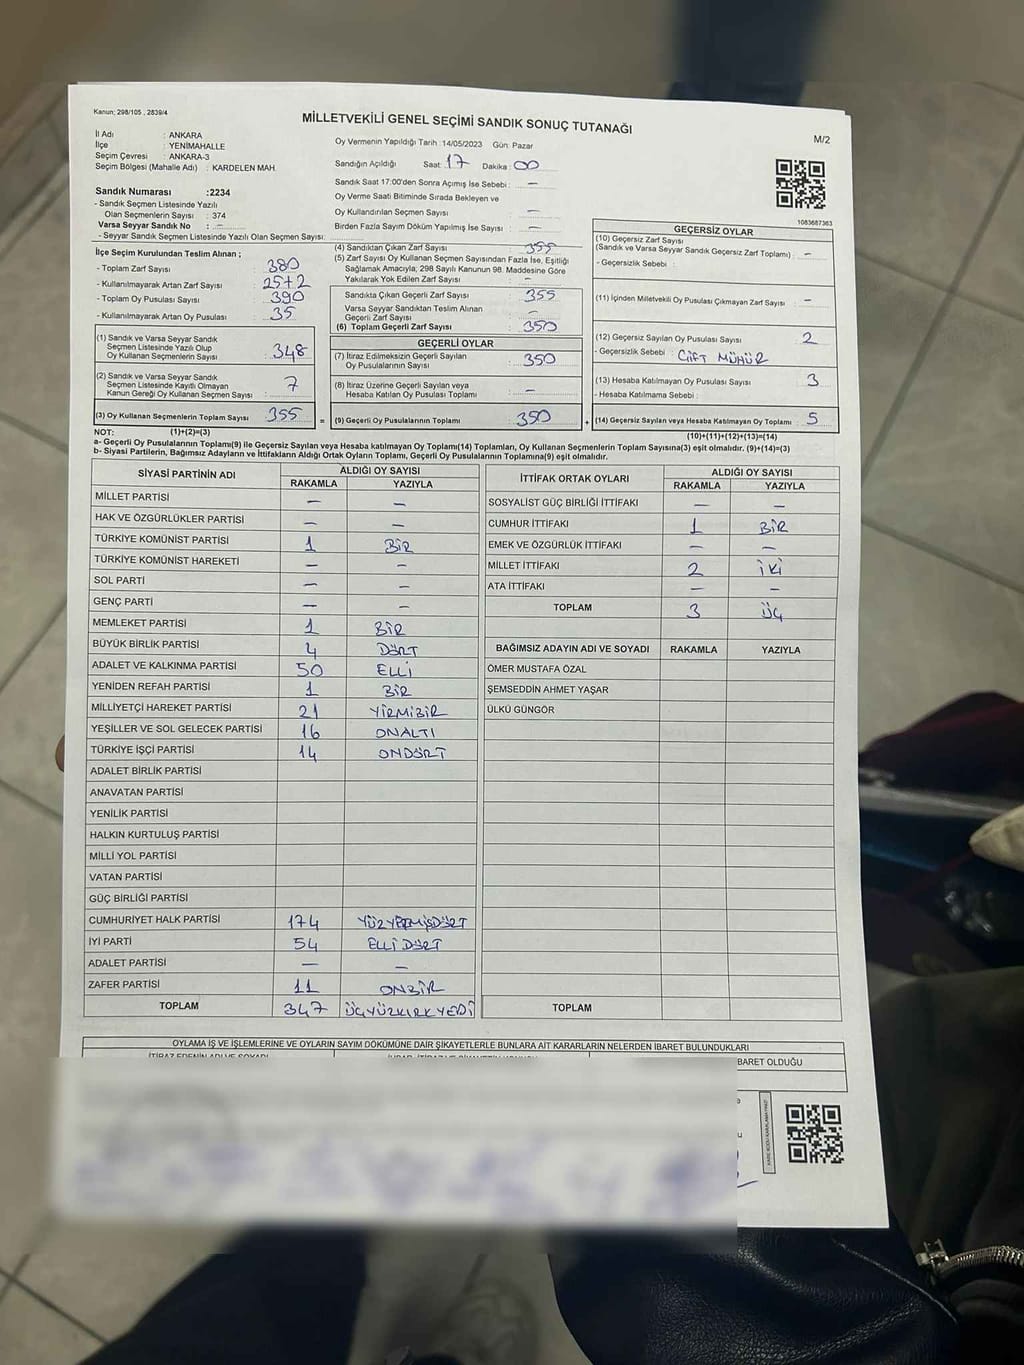 Kanun; 298/105 , 2839/4
MİLLETVEKİLİ GENEL SEÇİMİ SANDIK SONUÇ TUTANAĞI
M/2
İl Adı : ANKARA
İlçe : YENİMAHALLE
Seçim Çevresi : ANKARA-3
Seçim Bölgesi (Mahalle Adı) : KARDELEN MAH.
Oy Vermenin Yapıldığı Tarih :14/05/2023 Gün: Pazar
Sandığın Açıldığı Saat: 17 Dakika : 00
Sandık Saat 17:00'den Sonra Açımış İse Sebebi : —
Oy Verme Saati Bitiminde Sırada Bekleyen ve
Oy Kullandırılan Seçmen Sayısı —
Birden Fazla Sayım Döküm Yapılmış İse Sayısı : —
Sandık Numarası :2234
- Sandık Seçmen Listesinde Yazılı
Olan Seçmenlerin Sayısı : 374
Varsa Seyyar Sandık No : —
- Seyyar Sandık Seçmen Listesinde Yazılı Olan Seçmen Sayısı:
1083687363
İlçe Seçim Kurulundan Teslim Alınan ;
- Toplam Zarf Sayısı : 380
- Kullanılmayarak Artan Zarf Sayısı : 25+2
- Toplam Oy Pusulası Sayısı : 390
- Kullanılmayarak Artan Oy Pusulası : 35
(1) Sandık ve Varsa Seyyar Sandık
Seçmen Listesinde Yazılı Olup
Oy Kullanan Seçmenlerin Sayısı : 348
(2) Sandık ve Varsa Seyyar Sandık
Seçmen Listesinde Kayıtlı Olmayan
Kanun Gereği Oy Kullanan Seçmen Sayısı : 7
(3) Oy Kullanan Seçmenlerin Toplam Sayısı 355 =
(4) Sandıktan Çıkan Zarf Sayısı : 355
(5) Zarf Sayısı Oy Kullanan Seçmen Sayısından Fazla İse, Eşitliği
Sağlamak Amacıyla; 298 Sayılı Kanunun 98. Maddesine Göre
Yakılarak Yok Edilen Zarf Sayısı : —
Sandıkta Çıkan Geçerli Zarf Sayısı : 355
Varsa Seyyar Sandıktan Teslim Alınan
Geçerli Zarf Sayısı : —
(6) Toplam Geçerli Zarf Sayısı : 350
GEÇERLİ OYLAR
(7) İtiraz Edilmeksizin Geçerli Sayılan
Oy Pusulalarının Sayısı : 350
(8) İtiraz Üzerine Geçerli Sayılan veya
Hesaba Katılan Oy Pusulası Toplamı : —
(9) Geçerli Oy Pusulalarının Toplamı : 350 +
GEÇERSİZ OYLAR
(10) Geçersiz Zarf Sayısı
(Sandık ve Varsa Seyyar Sandık Geçersiz Zarf Toplamı) : —
- Geçersizlik Sebebi :
(11) İçinden Milletvekili Oy Pusulası Çıkmayan Zarf Sayısı : —
(12) Geçersiz Sayılan Oy Pusulası Sayısı : 2
- Geçersizlik Sebebi : ÇİFT MÜHÜR
(13) Hesaba Katılmayan Oy Pusulası Sayısı : 3
- Hesaba Katılmama Sebebi :
(14) Geçersiz Sayılan veya Hesaba Katılmayan Oy Toplamı : 5
NOT: (1)+(2)=(3)
(10)+(11)+(12)+(13)=(14)
a- Geçerli Oy Pusulalarının Toplamı(9) ile Geçersiz Sayılan veya Hesaba katılmayan Oy Toplamı(14) Toplamları, Oy Kullanan Seçmenlerin Toplam Sayısına(3) eşit olmalıdır. (9)+(14)=(3)
b- Siyasi Partilerin, Bağımsız Adayların ve İttifakların Aldığı Ortak Oyların Toplamı, Geçerli Oy Pusulalarının Toplamına(9) eşit olmalıdır.
SİYASİ PARTİNİN ADI ALDIĞI OY SAYISI
RAKAMLA YAZIYLA
MİLLET PARTİSİ — —
HAK VE ÖZGÜRLÜKLER PARTİSİ — —
TÜRKİYE KOMÜNİST PARTİSİ 1 BİR
TÜRKİYE KOMÜNİST HAREKETİ — —
SOL PARTİ — —
GENÇ PARTİ — —
MEMLEKET PARTİSİ 1 BİR
BÜYÜK BİRLİK PARTİSİ 4 DÖRT
ADALET VE KALKINMA PARTİSİ 50 ELLİ
YENİDEN REFAH PARTİSİ 1 BİR
MİLLİYETÇİ HAREKET PARTİSİ 21 YİRMİBİR
YEŞİLLER VE SOL GELECEK PARTİSİ 16 ONALTI
TÜRKİYE İŞÇİ PARTİSİ 14 ONDÖRT
ADALET BİRLİK PARTİSİ
ANAVATAN PARTİSİ
YENİLİK PARTİSİ
HALKIN KURTULUŞ PARTİSİ
MİLLİ YOL PARTİSİ
VATAN PARTİSİ
GÜÇ BİRLİĞİ PARTİSİ
CUMHURİYET HALK PARTİSİ 174 YÜZYETMİŞDÖRT
İYİ PARTİ 54 ELLİDÖRT
ADALET PARTİSİ — —
ZAFER PARTİSİ 11 ONBİR
TOPLAM 347 ÜÇYÜZKIRKYEDİ
İTTİFAK ORTAK OYLARI ALDIĞI OY SAYISI
RAKAMLA YAZIYLA
SOSYALİST GÜÇ BİRLİĞİ İTTİFAKI — —
CUMHUR İTTİFAKI 1 BİR
EMEK VE ÖZGÜRLÜK İTTİFAKI — —
MİLLET İTTİFAKI 2 İKİ
ATA İTTİFAKI — —
TOPLAM 3 ÜÇ
BAĞIMSIZ ADAYIN ADI VE SOYADI RAKAMLA YAZIYLA
ÖMER MUSTAFA ÖZAL
ŞEMSEDDİN AHMET YAŞAR
ÜLKÜ GÜNGÖR
TOPLAM
OYLAMA İŞ VE İŞLEMLERİNE VE OYLARIN SAYIM DÖKÜMÜNE DAİR ŞİKAYETLERLE BUNLARA AİT KARARLARIN NELERDEN İBARET BULUNDUKLARI
İTİRAZ EDENİN ADI VE SOYADI
BARET OLDUĞU